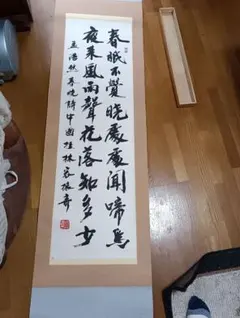 春眠不覺曉處處聞啼鳥
夜来風雨聲花落知多少
孟浩然春曉詩中國桂林